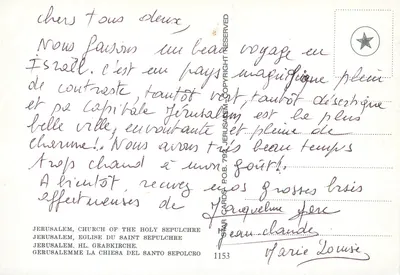 chers tous deux,
Nous faisons un beau voyage en
Israël. c'est un pays magnifique plein
de contraste tantôt vert, tantôt désertique
et sa capitale Jérusalem est la plus
belle ville, envoutante et pleine de
charme!. Nous avons très beau temps
trop chaud à mon goût!.
A bientôt, recevez nos grosses bises
affectueuses de Jacqueline
Jean-claude
Marie Louise
JERUSALEM, CHURCH OF THE HOLY SEPULCHRE
JERUSALEM, EGLISE DU SAINT SEPULCHRE
JERUSALEM, HL. GRABKIRCHE.
GERUSALEMME LA CHIESA DEL SANTO SEPOLCRO
1153
JERUSALEM COPYRIGHT RESERVED